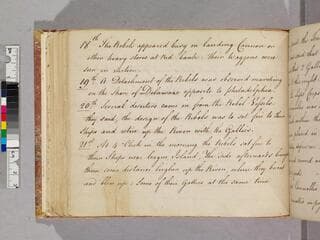 18th The Rebels appeared busy in landing Cannon or
other heavy stores at Red bank: their Waggons were
seen in motion.
19th A Detachment of the Rebels was observed marching
on the Shore of Delaware opposite to Philadelphia.
20th Several deserters came in from the Rebel Vessels.
they said, the design of the Rebels was to set fire to their
Ships and retire up the River with the Gallies.
21st At 4 Clock in the morning the Rebels set fire to
their Ships near league Island. The tide afterwards
them some distance higher up the River, where they burnt
and blew up: Some of their Gallies at the same time